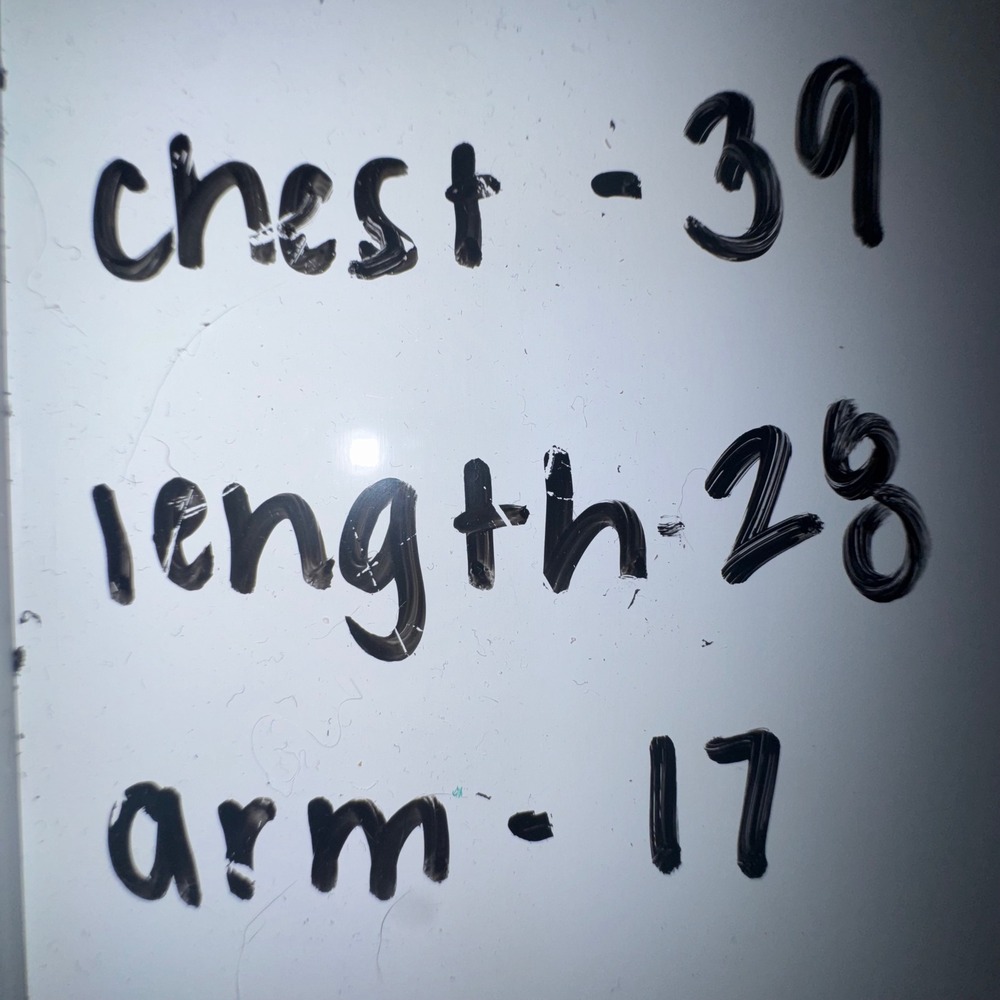 chest - 39
length - 28
arm - 17